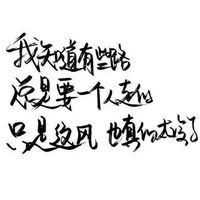 我知道有些路
总是要一个人去
只是这风 也真们太冷了